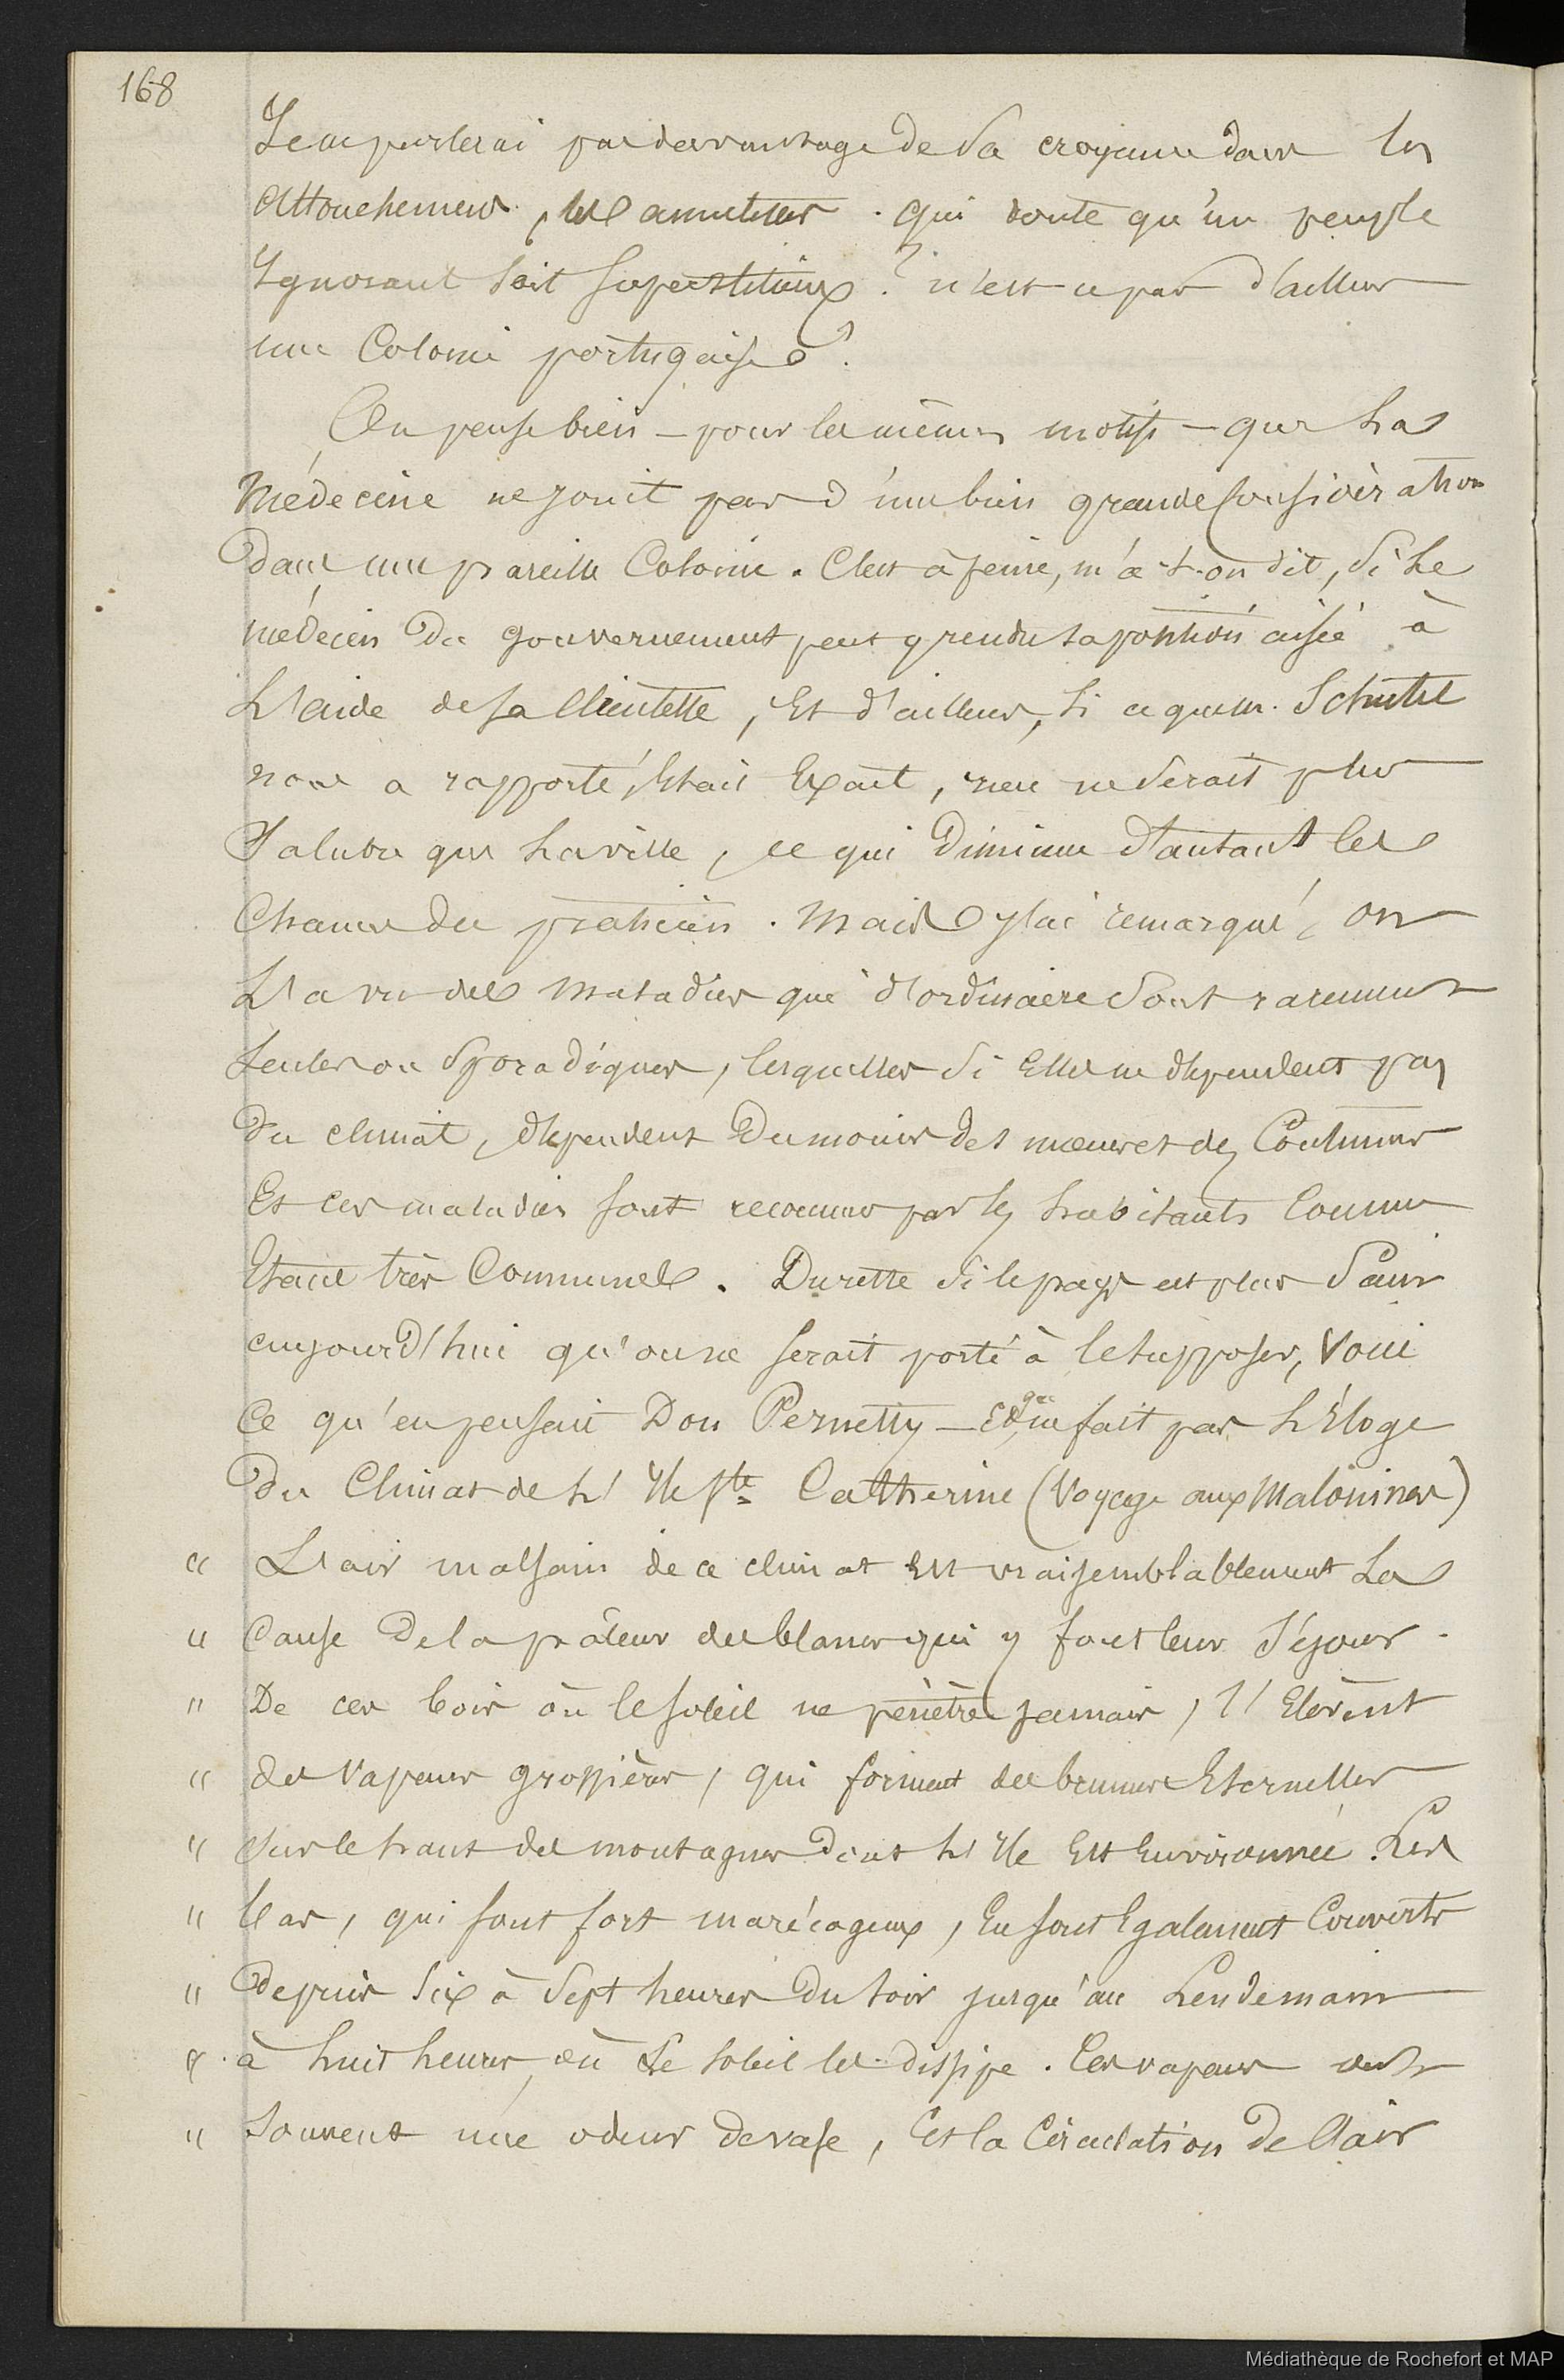 168
Je ne parlerai pas davantage de la croyance dans les
attouchemens, les amulettes. qui doute qu'un peuple
Ignorant soit superstitieux ? n'est-ce pas d'ailleurs
une Colonie portugaise ?
On pense bien - pour les mêmes motifs - que la
Médecine ne jouit pas d'une bien grande Considération
Dans une pareille Colonie. C'est à peine, m'a-t-on dit, si le
médecin du gouvernement peut y rendre sa position aisée à
L'aide de sa Clientelle, Et d'ailleurs, si ce que m. Schutel
nous a rapporté, Etait Exact, rien ne serait plus
Salubre que la ville, ce qui Diminue d'autant les
Chances du praticien. Mais j'ai remarqué, on
L'a vu des maladies qui d'ordinaire sont rarement
seules ou sporadiques, lesquelles si Elles ne dépendent pas
Du climat, dépendent Du moins des mœurs et des Coutumes
Et ces maladies sont reconnues par les habitants Comme
Etant très Communes. Du reste si le pays est plus Sain
aujourd'hui qu'on ne serait porté à le supposer, Voici
Ce qu'en pensait Don Pernetty - Et que ne fait pas L'Éloge
Du Climat de L'Ile Ste Catherine (Voyage aux Malouines)
" L'air malsain de ce climat Est vraisemblablement La
" Cause De la pâleur des blancs qui y font leur séjour.
" De ces bois où le soleil ne pénètre jamais, s'Elèvent
" des Vapeurs grossières, qui forment des brumes Eternelles
" Sur le haut des montagnes dont L'Ile Est Environnée. Les
" bas, qui sont fort marécageux, En sont Egalement Couverts
" Depuis six à sept heures Du soir jusqu'au Lendemain
" à huit heures, où Le soleil les dissipe. Ces vapeurs ont
" Souvent une odeur de vase, Et la Circulation De l'air
Médiathèque de Rochefort et MAP